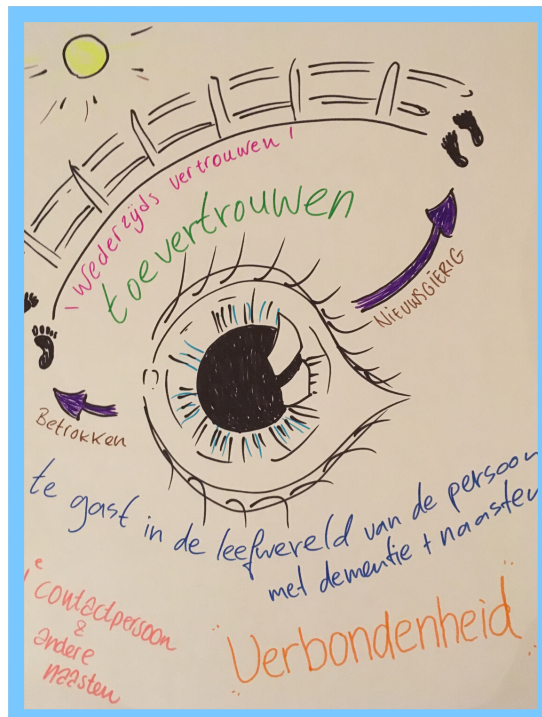 ' wederzijds vertrouwen '
toevertrouwen
NIEUWSGIERIG
Betrokken
te gast in de leefwereld van de persoon
met dementie + naasten
1e contactpersoon
&
andere
naasten
"Verbondenheid"